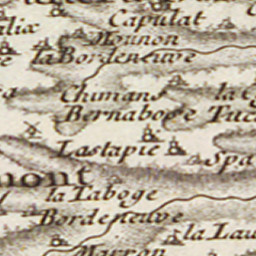 Capulat
Mounon
la Bordeneuve
Chimans
la
Bernaboge
Lastapie
Spa
mont
la Taboge
Bordeneuve
la Lau
Marron